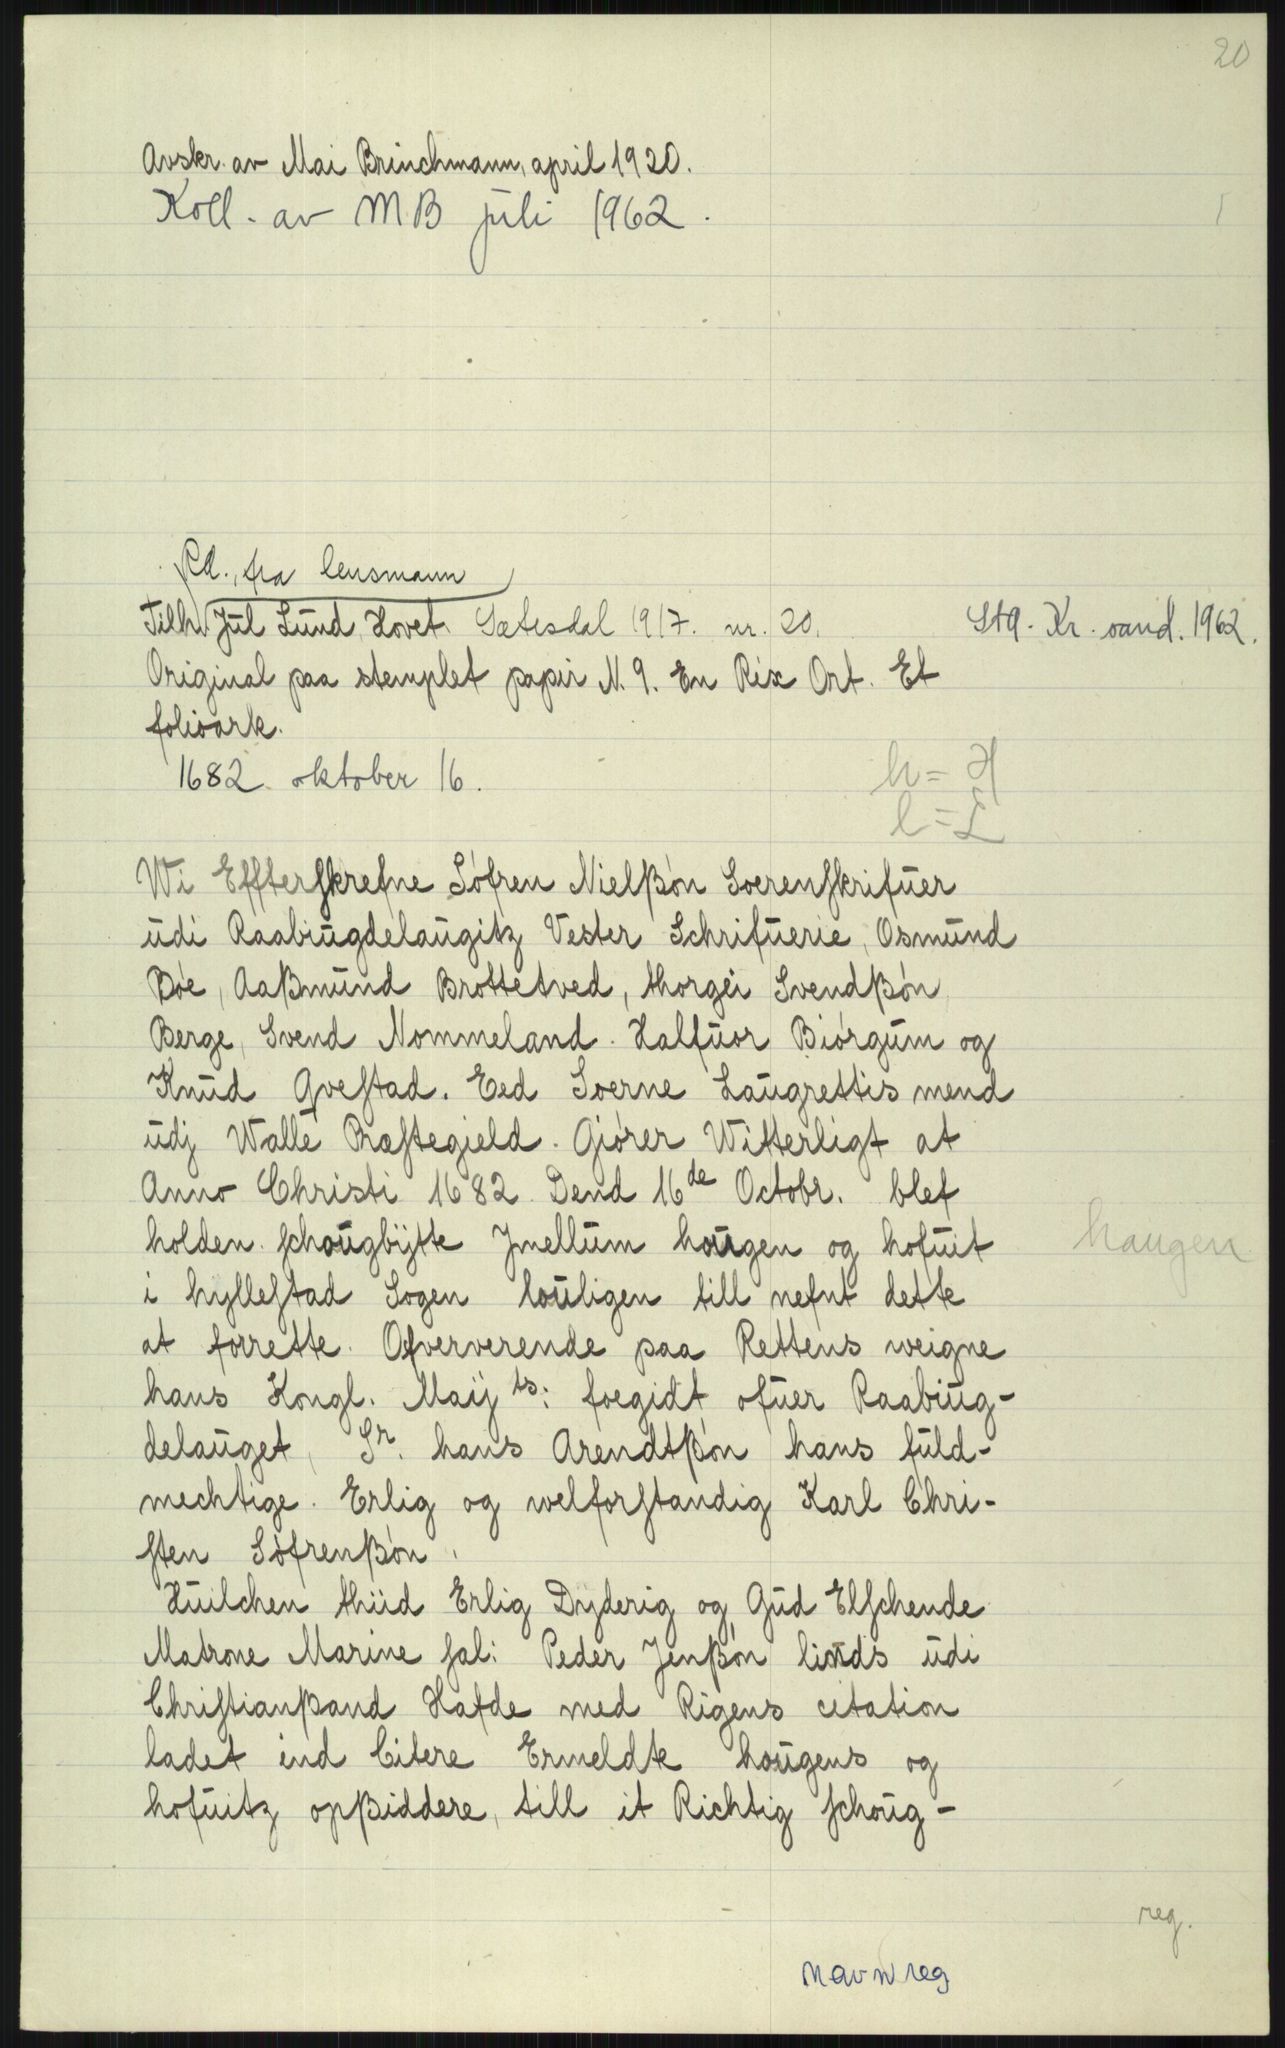 20
Avskr. av Mai Brinchmann, april 1920.
Koll. av MB juli 1962.
1
Rd., fra lensmann
Tilh. Jul Lund, Hovet. Sætesdal 1917. nr. 20. Sta. Kr. sand. 1962.
Original paa stemplet papir N. 9. En Rix Ort. Et
folioark.
1682 oktober 16.
h = H
l = L
Wi Effterſkrefne Söfren Nielßön Sorenſkrifuer
udi Raabiugdelaugitz Vester Schrifuerie, Osmund
Böe, Aaßmund Brottetved, thorgei Svendßön
Berge, Svend Nommeland. Halfuor Biörgum og
Knud Qveſtad. Eed Sorne Laugrettis mend
udj Walle Præſtegield. Giörer Witterligt at
Anno Christi 1682 Dend 16de Octobr. blef
holden ſchougbÿtte Jmellum hougen og hofuit haugen
i hylleſtad Sogen louligen till nefnt dette
at forrette. Ofververende paa Rettens weigne
hans Kongl. Maij ts: foegidt ofuer Raabiug-
delauget, Sr. hans Arendtßön hans fuld-
mechtige. Erlig og welforſtandig Karl Chri-
ſten Söfrenßön.
Huilchen thiid Erlig Dyderig og Gud Elſchende
Matrone Marine ſal: Peder Jenßön linds udi
Chriſtianßand Hafde med Rigens citation
ladet ind Citere Ermeldte hougens og
hofuitz opßiddere, till it Richtig ſchoug-
reg.
navnreg